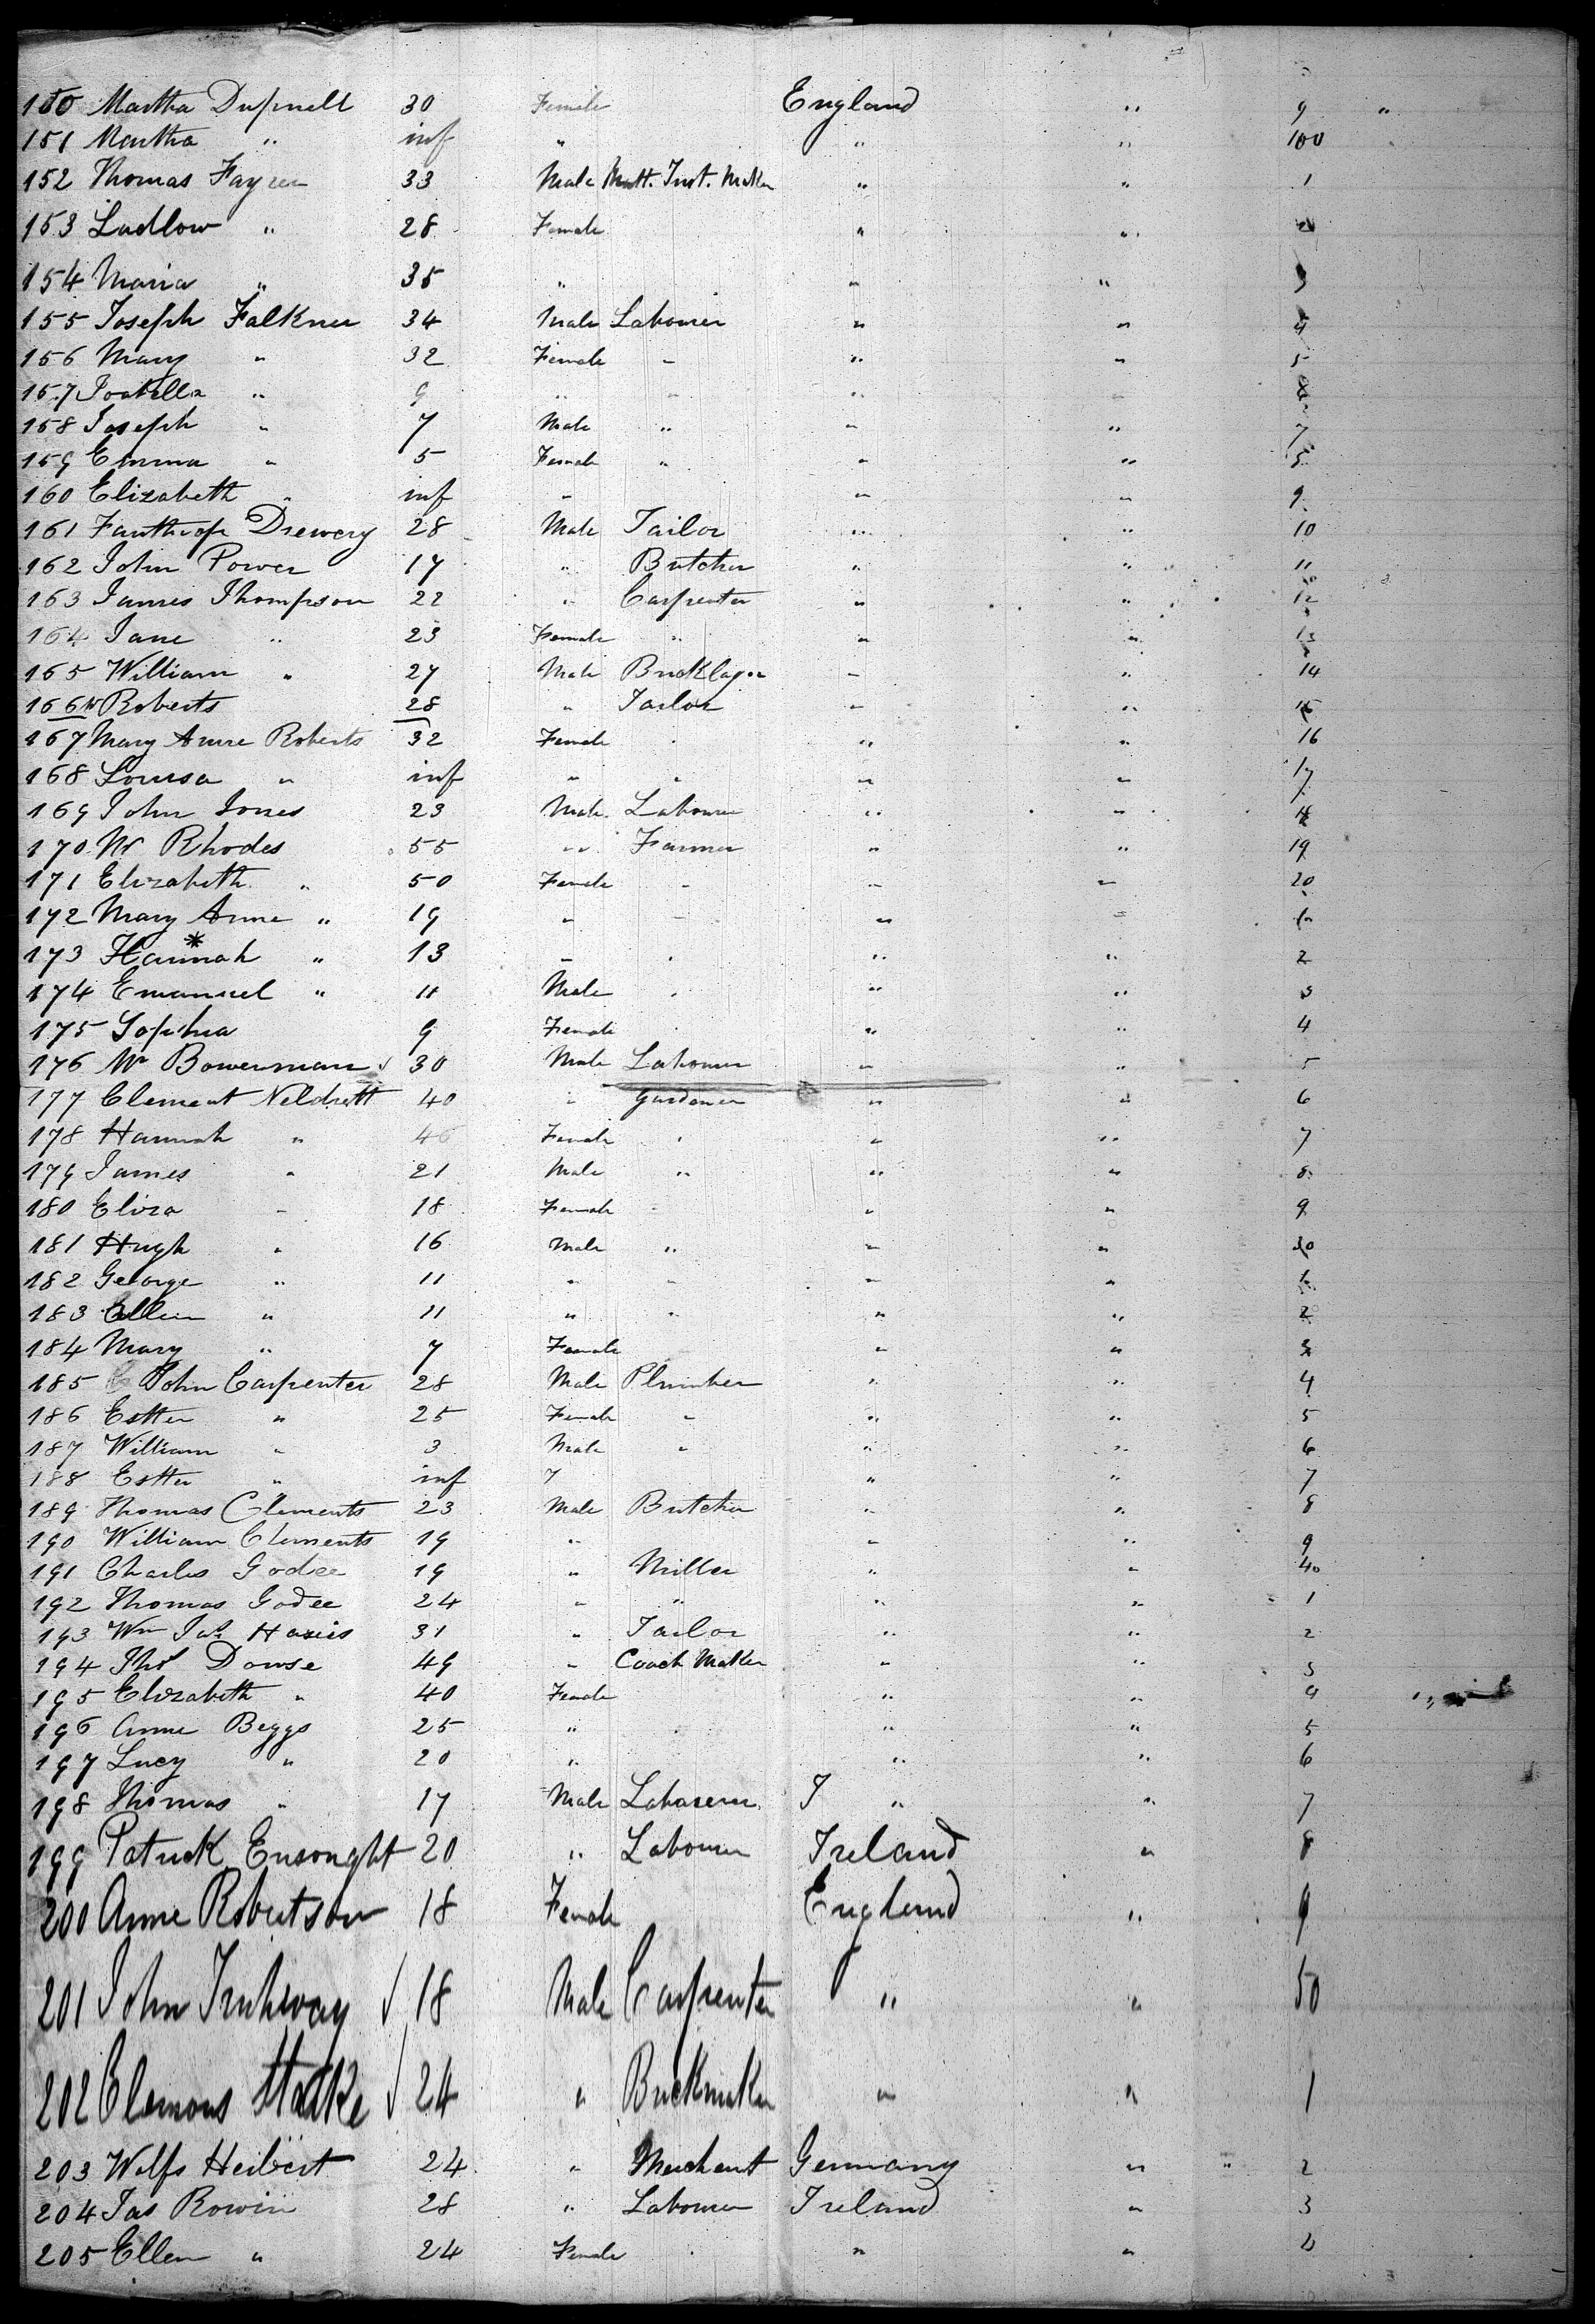 150 Martha Dufnell 30 Female England " 9 "
151 Martha " inf " " " 100
152 Thomas Fayrer 33 Male Matt. Inst. Maker " " 1
153 Ludlow " 28 Female " " 2
154 Maria " 35 " " " 3
155 Joseph Falkner 34 Male Labourer " " 4
156 Mary " 32 Female " " " 5
157 Isabella " 9 " " " " 6
158 Joseph " 7 Male " " " 7
159 Emma " 5 Female " " "
160 Elizabeth " inf " " " 9
161 Fanthrop Drewery 28 Male Tailor " " 10
162 John Power 17 " Butcher " " 11
163 James Thompson 22 " Carpenter " " 12
164 Jane " 23 Female " " " 13
165 William " 27 Male Bricklayer " " 14
166 Wm Roberts 28 " Tailor " " 15
167 Mary Anne Roberts 32 Female " " " 16
168 Louisa " inf " " " " 17
169 John Jones 23 Male Labourer " " 18
170 Wm Rhodes 55 " Farmer " " 19
171 Elizabeth " 50 Female " " " 20
172 Mary Anne " 19 " " " " 1
173 Hannah * " 13 " " " " 2
174 Emanuel " 11 Male " " " 3
175 Sophia 9 Female " " " 4
176 Wm Bowerman √ 30 Male Labourer " " 5
177 Clement Neldrett 40 " Gardener " " 6
178 Hannah " 46 Female " " " 7
179 James " 21 Male " " " 8
180 Eliza " 18 Female " " " 9
181 Hugh " 16 Male " " " 30
182 George " 11 " " " " 1
183 Ellen " 11 " " " " 2
184 Mary " 7 Female " " 3
185 John Carpenter 28 Male Plumber " " 4
186 Esther " 25 Female " " " 5
187 William " 3 Male " " " 6
188 Esther " inf 7 " " 7
189 Thomas Clements 23 Male Butcher " " 8
190 William Clements 19 " " " 9
191 Charles Godee 19 " Miller " " 40
192 Thomas Godee 24 " " " " 1
193 Wm Jas Haries 31 " Tailor " " 2
194 Thos Dowse 49 " Coach Maker " " 3
195 Elizabeth " 40 Female " " 4
196 Anne Beggs 25 " " " 5
197 Lucy " 20 " " " 6
198 Thomas " 17 Male Labourer I " " 7
199 Patrick Ensought 20 " Labourer Ireland " 8
200 Anne Robertson 18 Female England " 9
201 John √ 18 Male Carpenter " " 50
202 Clemons Stake √ 24 " Brickmaker " " 1
203 Wolfs Heibert 24 " Merchant Germany " " 2
204 Jas Rowin 28 " Labourer Ireland " 3
205 Ellen " 24 Female " " 4